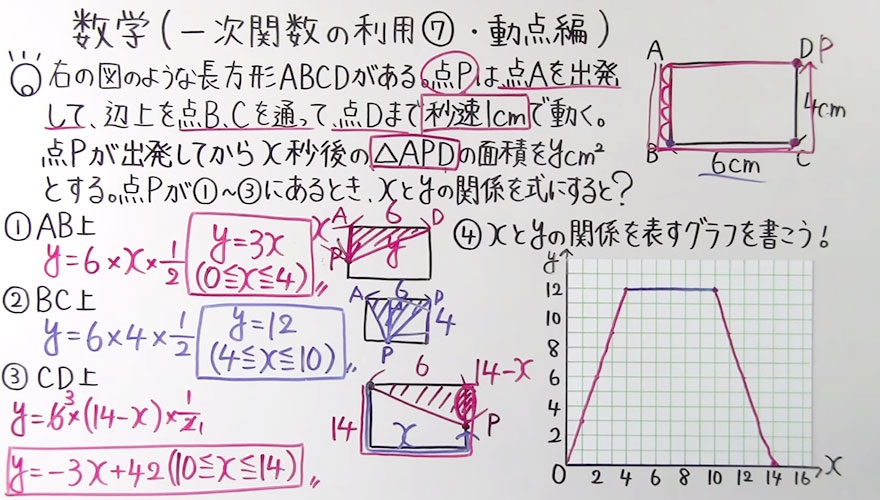 数学(一次関数の利用⑦・動点編)
右の図のような長方形ABCDがある。点Pは、点Aを出発
して、辺上を点B、Cを通って、点Dまで秒速1cmで動く。
点Pが出発してからx秒後の△APDの面積をycm²
とする。点Pが①~③にあるとき、xとyの関係を式にすると?
A
D P
4cm
B
6cm
C
①AB上
y=6×x×1/2
y=3x
(0≦x≦4)
A 6 D
x
y
P
②BC上
y=6×4×1/2
y=12
(4≦x≦10)
A 6 D
4
P
③CD上
y=6³×(14-x)×1/2₁
y=-3x+42(10≦x≦14)
6
14-x
14
x
P
④xとyの関係を表すグラフを書こう!
y
12
10
8
6
4
2
0 2 4 6 8 10 12 14 16 x